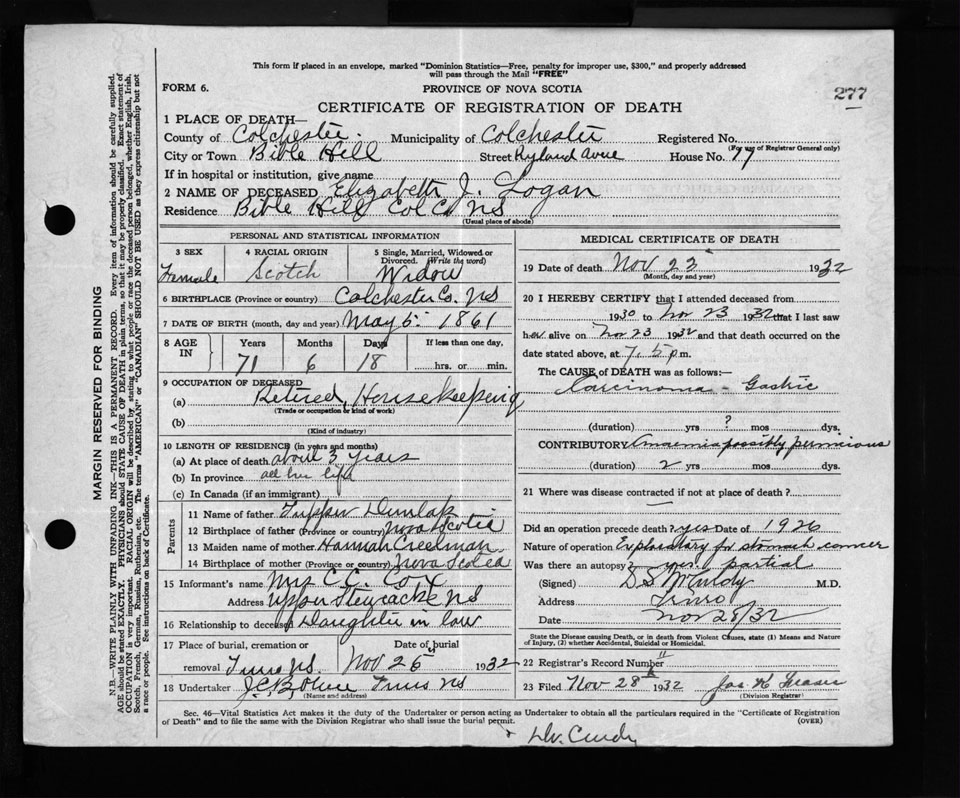 This form if placed in an envelope, marked "Dominion Statistics—Free, penalty for improper use, $300," and properly addressed
will pass through the Mail "FREE"
FORM 6.
PROVINCE OF NOVA SCOTIA
277
CERTIFICATE OF REGISTRATION OF DEATH
1 PLACE OF DEATH—
County of Colchester Municipality of Colchester Registered No.
(For use of Registrar General only)
City or Town Bible Hill Street Ryland Avue House No. 77
If in hospital or institution, give name
2 NAME OF DECEASED Elizabeth J. Logan
Residence Bible Hill Col Co NS
(Usual place of abode)
PERSONAL AND STATISTICAL INFORMATION
3 SEX 4 RACIAL ORIGIN 5 Single, Married, Widowed or Divorced. (Write the word)
Female Scotch Widow
6 BIRTHPLACE (Province or country) Colchester Co. NS
7 DATE OF BIRTH (month, day and year) May 5 1861
8 AGE IN Years Months Days If less than one day,
71 6 18 hrs. or min.
9 OCCUPATION OF DECEASED
(a) Retired, Housekeeping
(Trade or occupation or kind of work)
(b)
(Kind of industry)
10 LENGTH OF RESIDENCE (in years and months)
(a) At place of death about 3 years
(b) In province all her life
(c) In Canada (if an immigrant)
Parents
11 Name of father Tupper Dunlap
12 Birthplace of father (Province or country) Nova Scotia
13 Maiden name of mother Hannah Creelman
14 Birthplace of mother (Province or country) Nova Scotia
15 Informant's name Mrs C. C. Cox
Address Upper Stewiacke NS
16 Relationship to deceased Daughter in law
17 Place of burial, cremation or Date of burial
removal Truro NS Nov 25 1932
18 Undertaker Truro NS
(Name and address)
MEDICAL CERTIFICATE OF DEATH
19 Date of death Nov 23 1932
(Month, day and year)
20 I HEREBY CERTIFY that I attended deceased from
1930 to Nov 23 1932 that I last saw
her alive on Nov 23 1932 and that death occurred on the
date stated above, at 7.5 p m.
The CAUSE of DEATH was as follows:—
Carcinoma - Gastric
(duration) yrs ? mos dys.
CONTRIBUTORY Anaemia possibly pernicious
(duration) 2 yrs mos dys.
21 Where was disease contracted if not at place of death ?
Did an operation precede death? yes Date of 1926
Nature of operation Exploratory for stomach cancer
Was there an autopsy yes. partial
(Signed) D S McCurdy M.D.
Address Truro
Date Nov 28/32
State the Disease causing Death, or in death from Violent Causes, state (1) Means and Nature
of Injury, (2) whether Accidental, Suicidal or Homicidal.
22 Registrar's Record Number
23 Filed Nov 28 1932 Jas H Fraser
(Division Registrar)
Sec. 46—Vital Statistics Act makes it the duty of the Undertaker or person acting as Undertaker to obtain all the particulars required in the "Certificate of Registration
of Death" and to file the same with the Division Registrar who shall issue the burial permit. (OVER)
MARGIN RESERVED FOR BINDING
N.B.—WRITE PLAINLY WITH UNFADING INK—THIS IS A PERMANENT RECORD. Every item of information should be carefully supplied.
AGE should be stated EXACTLY. PHYSICIANS should STATE CAUSE OF DEATH in plain terms, so that it may be properly classified. Exact statement of
OCCUPATION is very important. RACIAL ORIGIN will be described by stating to what people or race the deceased person belonged, whether English, Irish,
Scotch, French, German, Russian, Ruthenian, etc. The terms "AMERICAN" or "CANADIAN" SHOULD NOT BE USED as they express citizenship but not
a race or people. See instructions on back of Certificate.